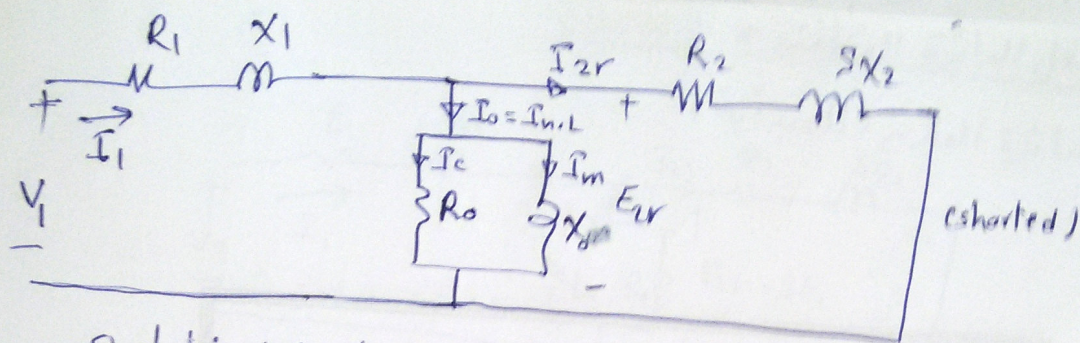 R1 X1
I2r R2 SX2
+ I1
I0 = In.L +
Ic Im
V1 R0 Xm E2r (shorted)
- -